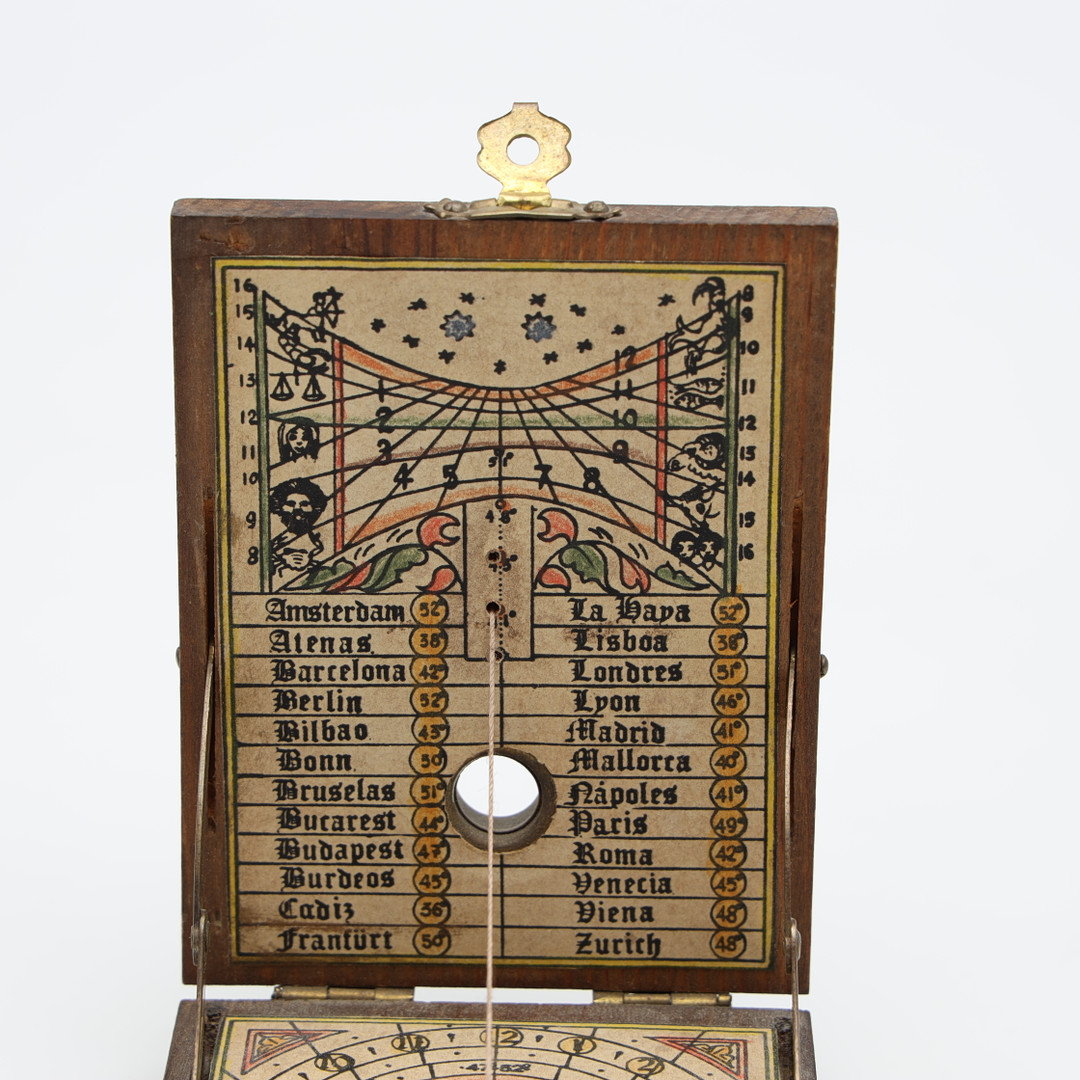 16 8
15 9
14 12 10
13 1 11 11
12 2 10 12
11 3 9 13
10 4 5 7 8 14
9 15
8 16
Amsterdam 52° La Haya 52°
Atenas 38° Lisboa 38°
Barcelona 42° Londres 51°
Berlin 52° Lyon 46°
Bilbao 43° Madrid 41°
Bonn 50° Mallorca 40°
Bruselas 51° Nápoles 41°
Bucarest 44° Paris 49°
Budapest 47° Roma 42°
Burdeos 45° Venecia 45°
Cadiz 36° Viena 48°
Franfürt 50° Zurich 48°
10 11 12 1 2